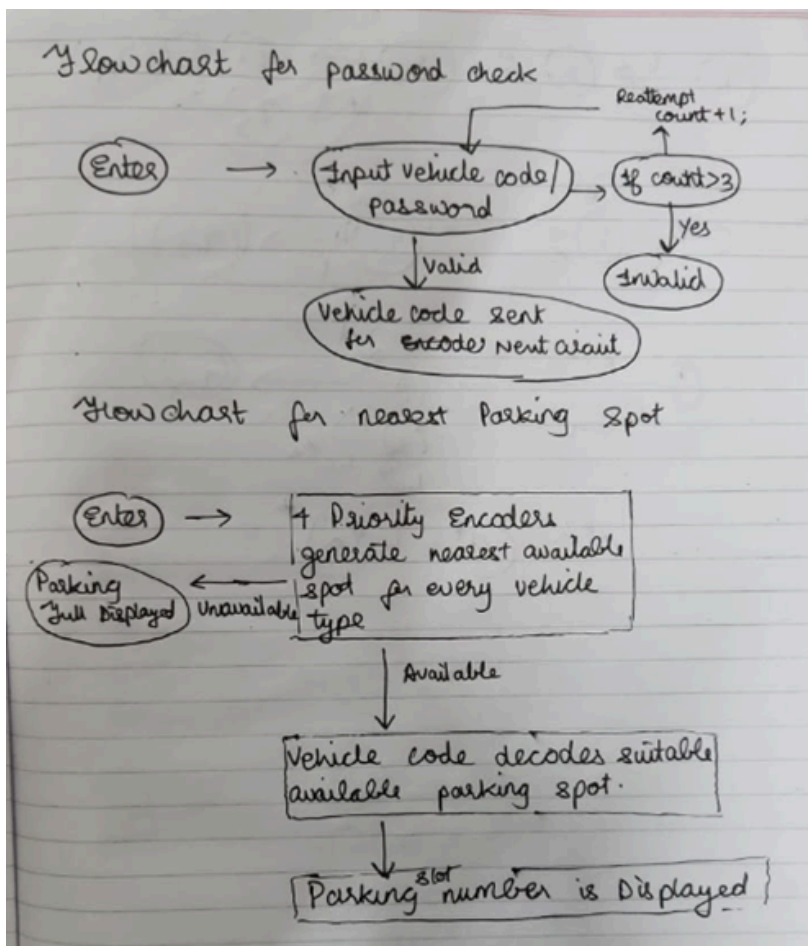 Flowchart for password check
Reattempt
count+1;
Enter
Input vehicle code/
password
If count>3
Yes
Valid
Invalid
Vehicle code sent
for Encoder
Flowchart for nearest Parking Spot
Enter
4 Priority Encoders
generate nearest available
spot for every vehicle
type
Parking
Full Displayed
Unavailable
Available
Vehicle code decodes suitable
available parking spot.
Parking slot number is Displayed